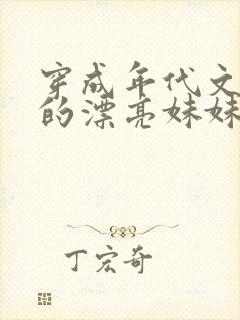 穿成年代文
的漂亮妹妹
丁宏奇